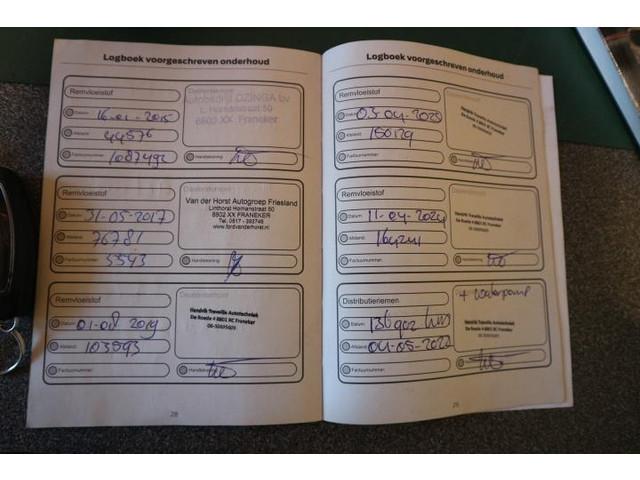 Logboek voorgeschreven onderhoud
Remvloeistof
Datum: 16-01-2015
Afstand: 44576
Factuurnummer: 1087492
Dealerstempel
Autobedrijf OZINGA bv
L. Homanstraat 50
8802 XX Franeker
Handtekening:
Remvloeistof
Datum: 31-05-2017
Afstand: 76781
Factuurnummer: 5543
Dealerstempel
Van der Horst Autogroep Friesland
Linthorst Homanstraat 50
8802 XX FRANEKER
Tel. 0517 - 393746
www.fordvanderhorst.nl
Handtekening:
Remvloeistof
Datum: 01-08 2019
Afstand: 103593
Factuurnummer:
Dealerstempel
Hendrik Travaille Autotechniek
De Roede 4 8801 RC Franeker
Handtekening:
28
Logboek voorgeschreven onderhoud
Remvloeistof
Datum: 03 04-2023
Afstand: 150129
Factuurnummer:
Hendrik Travaille Autotechniek
De Roede 4 8801 RC Franeker
Handtekening:
Remvloeistof
Datum: 11-04-2024
Afstand:
Factuurnummer:
Hendrik Travaille Autotechniek
De Roede 4 8801 RC Franeker
Handtekening:
Distributieriemen
Datum: 136902 km
Afstand: 04-05-2022
Factuurnummer:
+ waterpomp
Hendrik Travaille Autotechniek
De Roede 4 8801 RC Franeker
Handtekening:
29